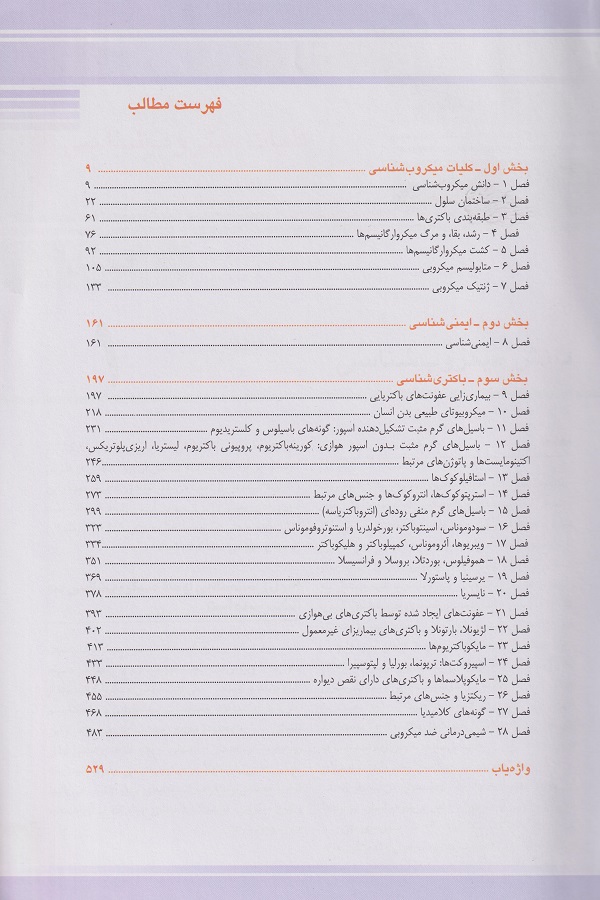 فهرست مطالب
بخش اول - کلیات میکروب‌شناسی ۹
فصل ۱ - دانش میکروب‌شناسی ۹
فصل ۲ - ساختمان سلول ۲۲
فصل ۳ - طبقه‌بندی باکتری‌ها ۶۱
فصل ۴ - رشد، بقا، و مرگ میکروارگانیسم‌ها ۷۶
فصل ۵ - کشت میکروارگانیسم‌ها ۹۲
فصل ۶ - متابولیسم میکروبی ۱۰۵
فصل ۷ - ژنتیک میکروبی ۱۳۳
بخش دوم - ایمنی‌شناسی ۱۶۱
فصل ۸ - ایمنی‌شناسی ۱۶۱
بخش سوم - باکتری‌شناسی ۱۹۷
فصل ۹ - بیماری‌زایی عفونت‌های باکتریایی ۱۹۷
فصل ۱۰ - میکروبیوتای طبیعی بدن انسان ۲۱۸
فصل ۱۱ - باسیل‌های گرم مثبت تشکیل‌دهنده اسپور: گونه‌های باسیلوس و کلستریدیوم ۲۳۱
فصل ۱۲ - باسیل‌های گرم مثبت بدون اسپور هوازی: کورینه‌باکتریوم، پروپیونی باکتریوم، لیستریا، اریزی‌پلوتریکس،
اکتینومایست‌ها و پاتوژن‌های مرتبط ۲۴۶
فصل ۱۳ - استافیلوکوک‌ها ۲۵۹
فصل ۱۴ - استرپتوکوک‌ها، انتروکوک‌ها و جنس‌های مرتبط ۲۷۳
فصل ۱۵ - باسیل‌های گرم منفی روده‌ای (انتروباکتریاسه) ۲۹۹
فصل ۱۶ - سودوموناس، اسینتوباکتر، بورخولدریا و استنوتروفوموناس ۳۲۳
فصل ۱۷ - ویبریوها، آئروموناس، کمپیلوباکتر و هلیکوباکتر ۳۳۴
فصل ۱۸ - هموفیلوس، بوردتلا، بروسلا و فرانسیسلا ۳۵۱
فصل ۱۹ - یرسینیا و پاستورلا ۳۶۹
فصل ۲۰ - نایسریا ۳۷۸
فصل ۲۱ - عفونت‌های ایجاد شده توسط باکتری‌های بی‌هوازی ۳۹۳
فصل ۲۲ - لژیونلا، بارتونلا و باکتری‌های بیماریزای غیرمعمول ۴۰۲
فصل ۲۳ - مایکوباکتریوم‌ها ۴۱۳
فصل ۲۴ - اسپیروکت‌ها: ترپونما، بورلیا و لپتوسپیرا ۴۳۳
فصل ۲۵ - مایکوپلاسماها و باکتری‌های دارای نقص دیواره ۴۴۸
فصل ۲۶ - ریکتزیا و جنس‌های مرتبط ۴۵۵
فصل ۲۷ - گونه‌های کلامیدیا ۴۶۸
فصل ۲۸ - شیمی‌درمانی ضد میکروبی ۴۸۳
واژه‌یاب ۵۲۹